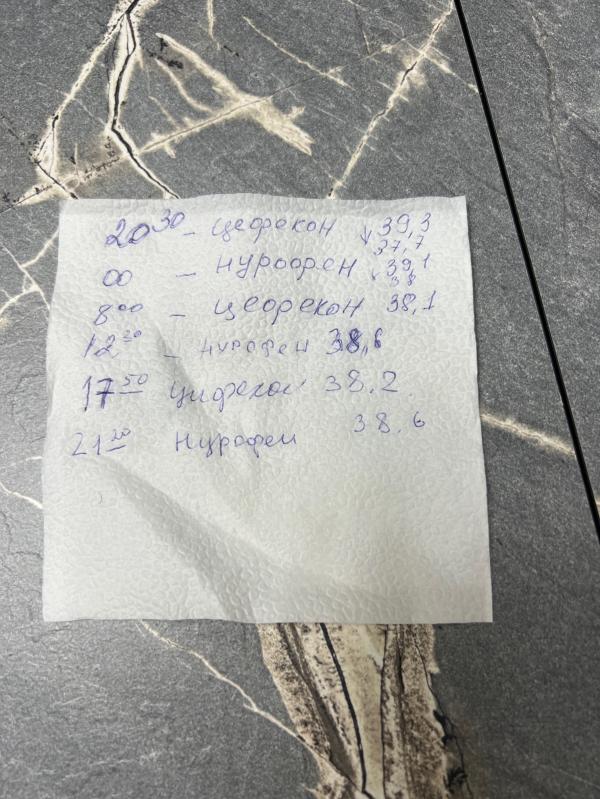 20 30 - цефекон ↓ 39,3
37,7
00 - нурофен ↓ 39,1
38
8 00 - цефекон 38,1
12 20 - нурофен 38,6
17 50 цифекон 38.2
21 20 нурофен 38.6